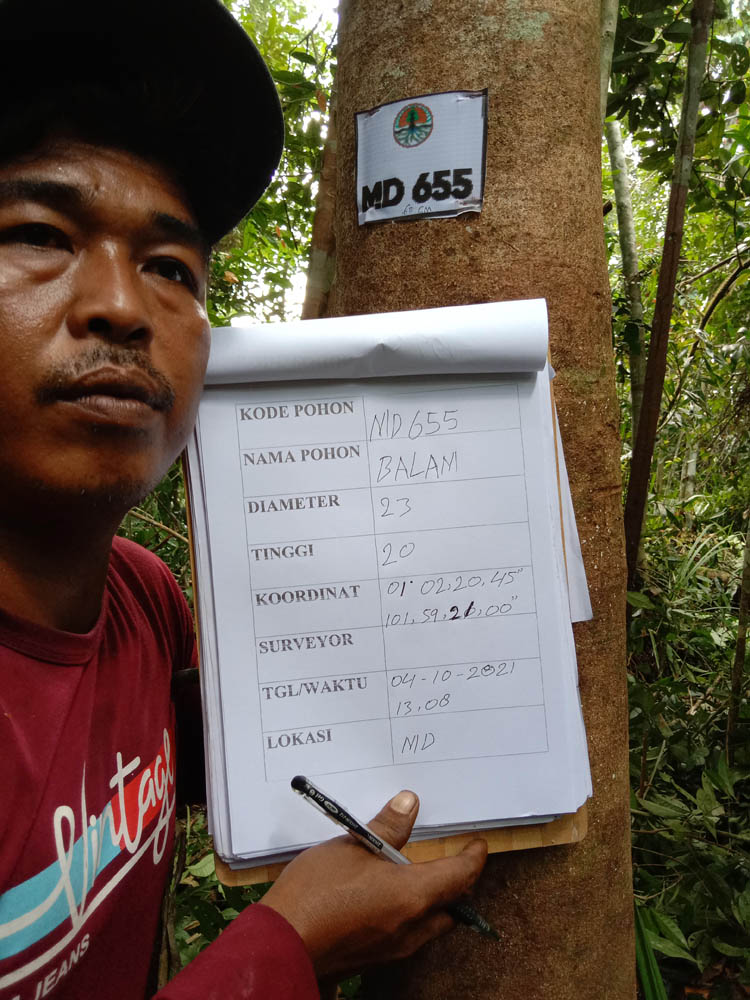 MD 655
KODE POHON MD 655
NAMA POHON BALAM
DIAMETER 23
TINGGI 20
KOORDINAT 01° 02, 20, 45"
101, 59, 26, 00"
SURVEYOR
TGL/WAKTU 04-10-2021
13,08
LOKASI MD
Vintage
JEANS